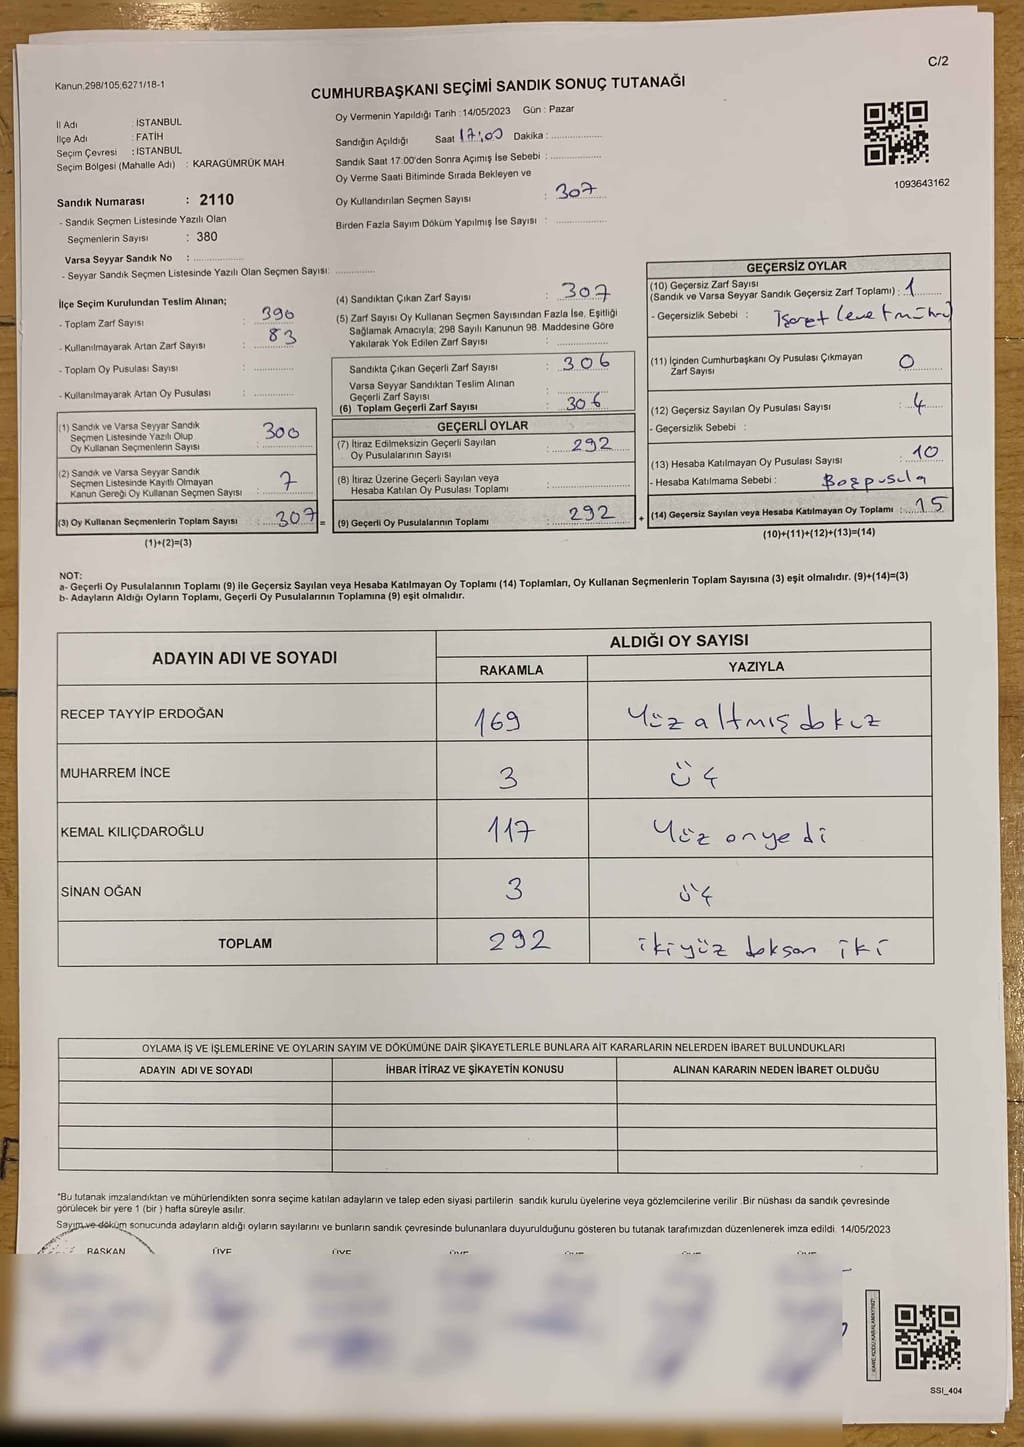 C/2
Kanun,298/105,6271/18-1
CUMHURBAŞKANI SEÇİMİ SANDIK SONUÇ TUTANAĞI
İl Adı : İSTANBUL
İlçe Adı : FATİH
Seçim Çevresi : İSTANBUL
Seçim Bölgesi (Mahalle Adı) : KARAGÜMRÜK MAH
Sandık Numarası : 2110
- Sandık Seçmen Listesinde Yazılı Olan
Seçmenlerin Sayısı : 380
Varsa Seyyar Sandık No :
- Seyyar Sandık Seçmen Listesinde Yazılı Olan Seçmen Sayısı:
Oy Vermenin Yapıldığı Tarih :14/05/2023 Gün : Pazar
Sandığın Açıldığı Saat 17:00 Dakika :
Sandık Saat 17:00'den Sonra Açımış İse Sebebi :
Oy Verme Saati Bitiminde Sırada Bekleyen ve
Oy Kullandırılan Seçmen Sayısı : 307
Birden Fazla Sayım Döküm Yapılmış İse Sayısı :
1093643162
İlçe Seçim Kurulundan Teslim Alınan;
- Toplam Zarf Sayısı : 390
- Kullanılmayarak Artan Zarf Sayısı : 83
- Toplam Oy Pusulası Sayısı :
- Kullanılmayarak Artan Oy Pusulası :
(1) Sandık ve Varsa Seyyar Sandık
Seçmen Listesinde Yazılı Olup
Oy Kullanan Seçmenlerin Sayısı : 300
(2) Sandık ve Varsa Seyyar Sandık
Seçmen Listesinde Kayıtlı Olmayan
Kanun Gereği Oy Kullanan Seçmen Sayısı : 7
(3) Oy Kullanan Seçmenlerin Toplam Sayısı : 307 =
(1)+(2)=(3)
(4) Sandıktan Çıkan Zarf Sayısı : 307
(5) Zarf Sayısı Oy Kullanan Seçmen Sayısından Fazla İse, Eşitliği
Sağlamak Amacıyla; 298 Sayılı Kanunun 98. Maddesine Göre
Yakılarak Yok Edilen Zarf Sayısı :
Sandıkta Çıkan Geçerli Zarf Sayısı : 306
Varsa Seyyar Sandıktan Teslim Alınan
Geçerli Zarf Sayısı :
(6) Toplam Geçerli Zarf Sayısı : 306
GEÇERLİ OYLAR
(7) İtiraz Edilmeksizin Geçerli Sayılan
Oy Pusulalarının Sayısı : 292
(8) İtiraz Üzerine Geçerli Sayılan veya
Hesaba Katılan Oy Pusulası Toplamı :
(9) Geçerli Oy Pusulalarının Toplamı : 292 +
GEÇERSİZ OYLAR
(10) Geçersiz Zarf Sayısı
(Sandık ve Varsa Seyyar Sandık Geçersiz Zarf Toplamı) : 1
- Geçersizlik Sebebi : İşaret (evet mühr)
(11) İçinden Cumhurbaşkanı Oy Pusulası Çıkmayan
Zarf Sayısı : 0
(12) Geçersiz Sayılan Oy Pusulası Sayısı : 4
- Geçersizlik Sebebi :
(13) Hesaba Katılmayan Oy Pusulası Sayısı : 10
- Hesaba Katılmama Sebebi : Boş pusula
(14) Geçersiz Sayılan veya Hesaba Katılmayan Oy Toplamı : 15
(10)+(11)+(12)+(13)=(14)
NOT:
a- Geçerli Oy Pusulalarının Toplamı (9) ile Geçersiz Sayılan veya Hesaba Katılmayan Oy Toplamı (14) Toplamları, Oy Kullanan Seçmenlerin Toplam Sayısına (3) eşit olmalıdır. (9)+(14)=(3)
b- Adayların Aldığı Oyların Toplamı, Geçerli Oy Pusulalarının Toplamına (9) eşit olmalıdır.
ADAYIN ADI VE SOYADI
ALDIĞI OY SAYISI
RAKAMLA YAZIYLA
RECEP TAYYİP ERDOĞAN 169 Yüz altmış dokuz
MUHARREM İNCE 3 üç
KEMAL KILIÇDAROĞLU 117 Yüz onyedi
SİNAN OĞAN 3 üç
TOPLAM 292 ikiyüz doksan iki
OYLAMA İŞ VE İŞLEMLERİNE VE OYLARIN SAYIM VE DÖKÜMÜNE DAİR ŞİKAYETLERLE BUNLARA AİT KARARLARIN NELERDEN İBARET BULUNDUKLARI
ADAYIN ADI VE SOYADI İHBAR İTİRAZ VE ŞİKAYETİN KONUSU ALINAN KARARIN NEDEN İBARET OLDUĞU
*Bu tutanak imzalandıktan ve mühürlendikten sonra seçime katılan adayların ve talep eden siyasi partilerin sandık kurulu üyelerine veya gözlemcilerine verilir .Bir nüshası da sandık çevresinde
görülecek bir yere 1 (bir ) hafta süreyle asılır.
Sayım ve döküm sonucunda adayların aldığı oyların sayılarını ve bunların sandık çevresinde bulunanlara duyurulduğunu gösteren bu tutanak tarafımızdan düzenlenerek imza edildi. 14/05/2023
BAŞKAN ÜYE ÜYE ÜYE ÜYE ÜYE ÜYE
SSI_404